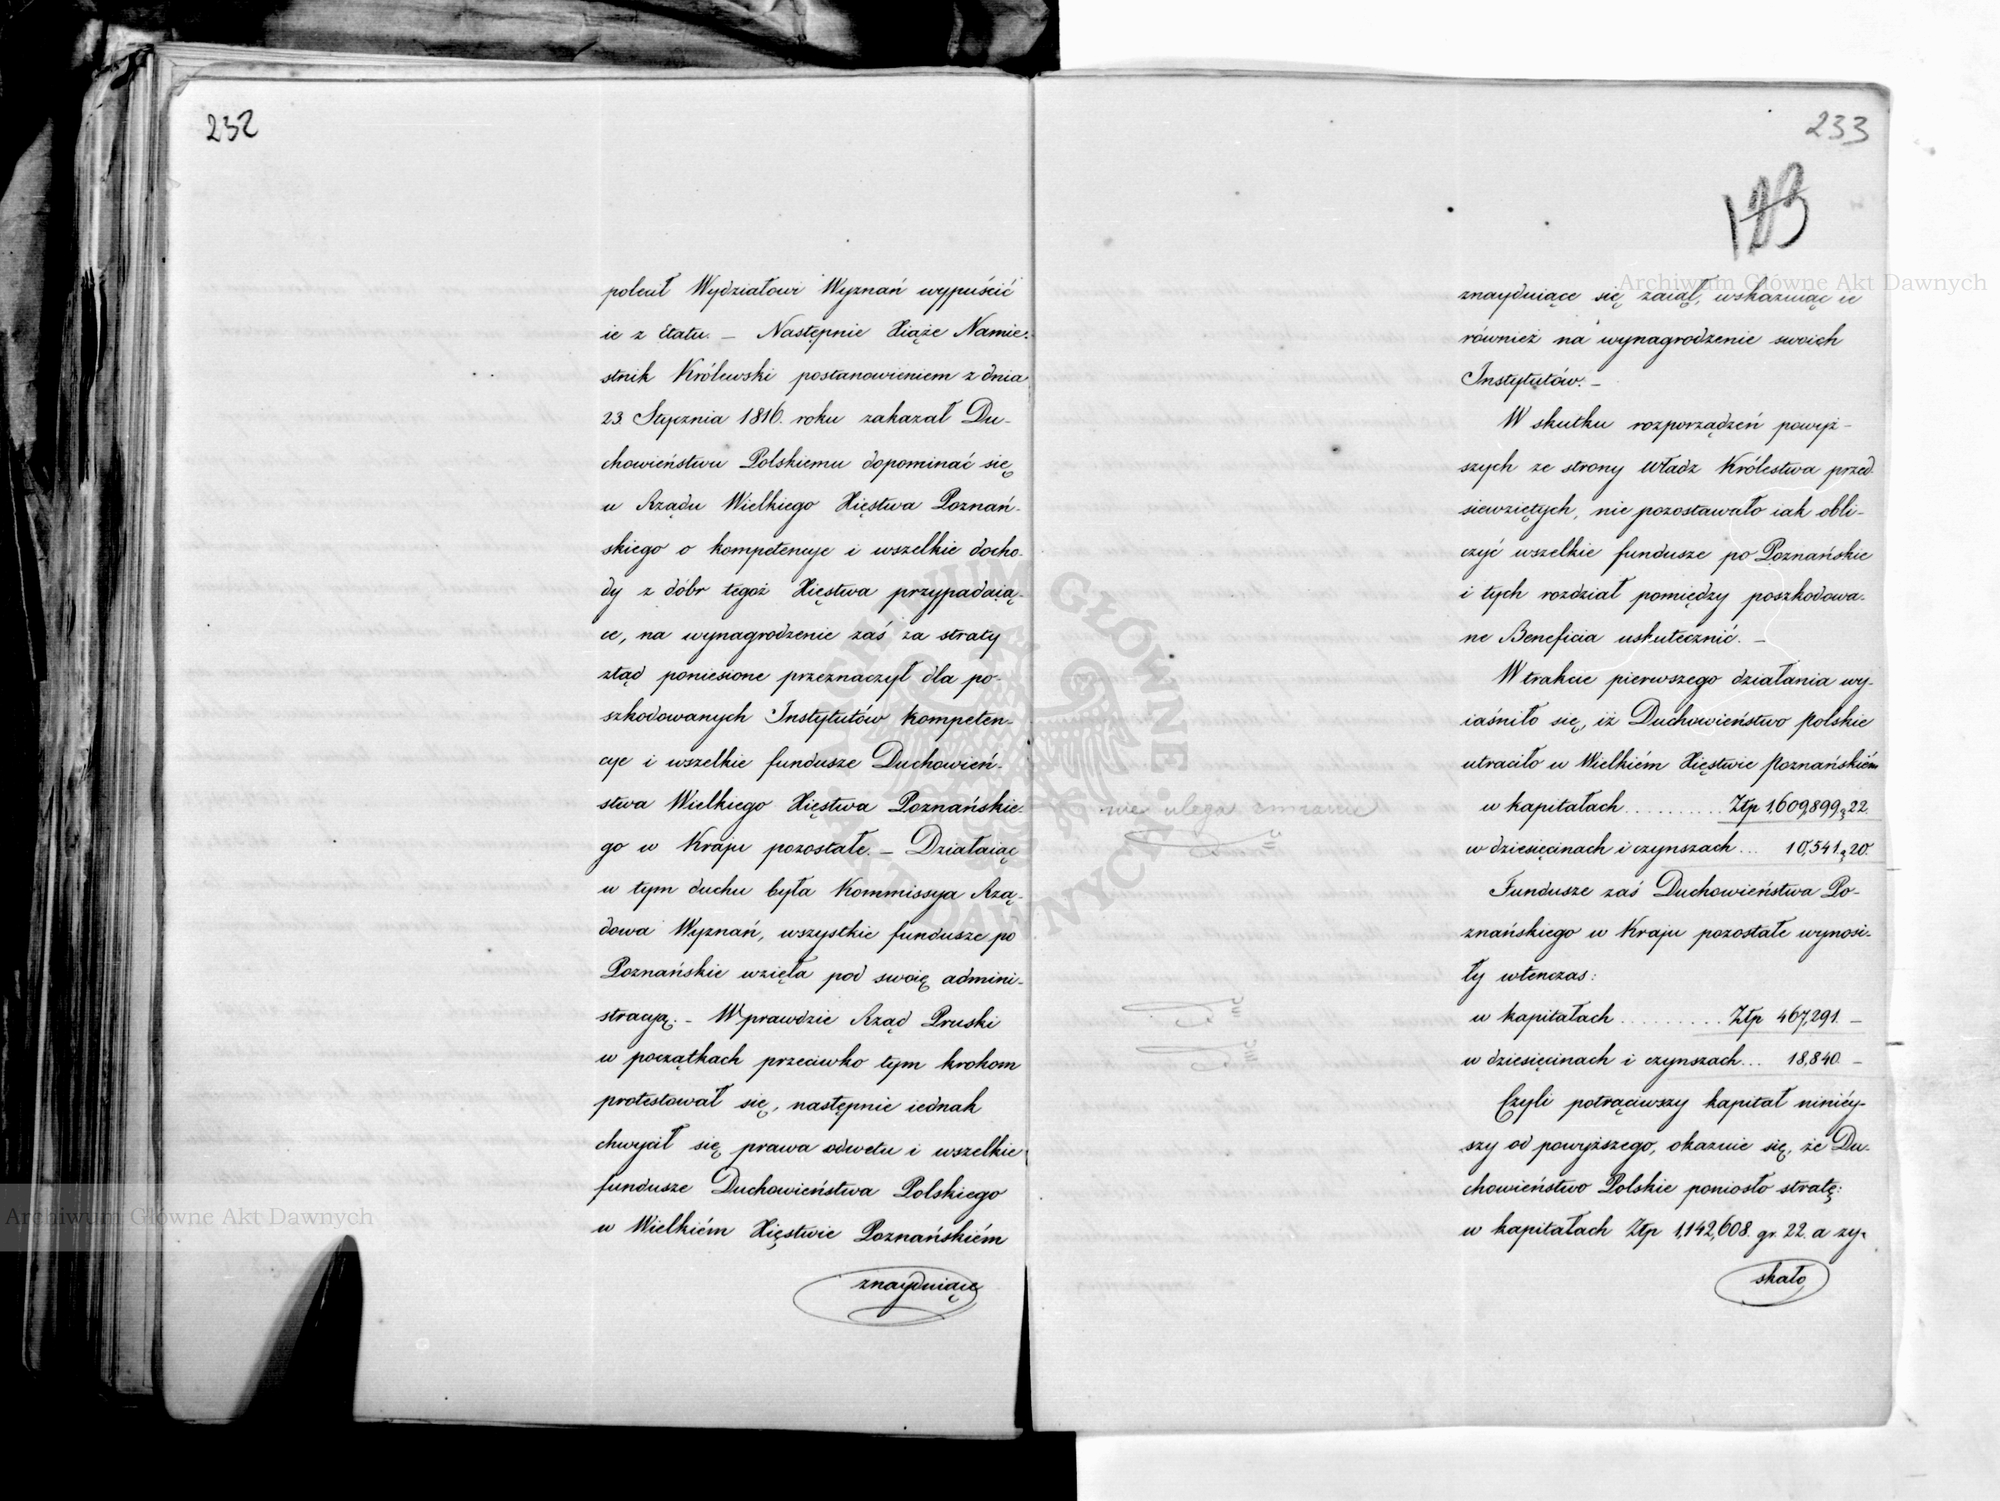 232
polecił Wydziałowi Wyznań wypuścić
ie z Etatu. — Następnie Xiąże Namie-
stnik Królewski postanowieniem z dnia
23. Stycznia 1816. roku zakazał Du-
chowieństwu Polskiemu dopominać się
u Rządu Wielkiego Xięstwa Poznań-
skiego o kompetencye i wszelkie docho-
dy z dóbr tegoż Xięstwa przypadaią-
ce, na wynagrodzenie zaś za straty
ztąd poniesione przeznaczył dla po-
szkodowanych Instytutów kompeten-
cye i wszelkie fundusze Duchowień-
stwa Wielkiego Xięstwa Poznańskie-
go w Kraju pozostałe. — Działaiąc
w tym duchu była Kommissya Rzą-
dowa Wyznań, wszystkie fundusze po
Poznańskie wzięła pod swoię admini-
stracyą. — Wprawdzie Rząd Pruski
w początkach przeciwko tym krokom
protestował się, następnie iednak
chwycił się prawa odwetu i wszelkie
fundusze Duchowieństwa Polskiego
w Wielkiém Xięstwie Poznańskiém
znayduiące
233
123
znayduiące się zaiął, wskazuiąc ie
również na wynagrodzenie swoich
Instytutów. —
W skutku rozporządzeń powyż-
szych ze strony Władz Królestwa przed
siewziętych, nie pozostawało iak obli-
czyć wszelkie fundusze po Poznańskie
i tych rozdział pomiędzy poszkodowa-
ne Beneficia uskutecznić. —
W trakcie pierwszego działania wy-
iaśniło się, iż Duchowieństwo Polskie
utraciło w Wielkiém Xięstwie Poznańskiém
w kapitałach . . . . . . . . . Złp 1,609,899 g 22.
w dziesięcinach i czynszach . . . 10,541 g 20.
Fundusze zaś Duchowieństwa Po-
znańskiego w Kraju pozostałe wynosi-
ły wtenczas:
w kapitałach . . . . . . . . . Złp 467,291. —
w dziesięcinach i czynszach . . . 18,840. —
Czyli potrąciwszy kapitał niniéy-
szy od powyższego, okazuie się, że Du-
chowieństwo Polskie poniosło stratę:
w kapitałach Złp 1,142,608. gr. 22. a zy-
skało
nie ulega zmianie
Archiwum Główne Akt Dawnych
Archiwum Główne Akt Dawnych
ARCHIWUM GŁÓWNE AKT DAWNYCH